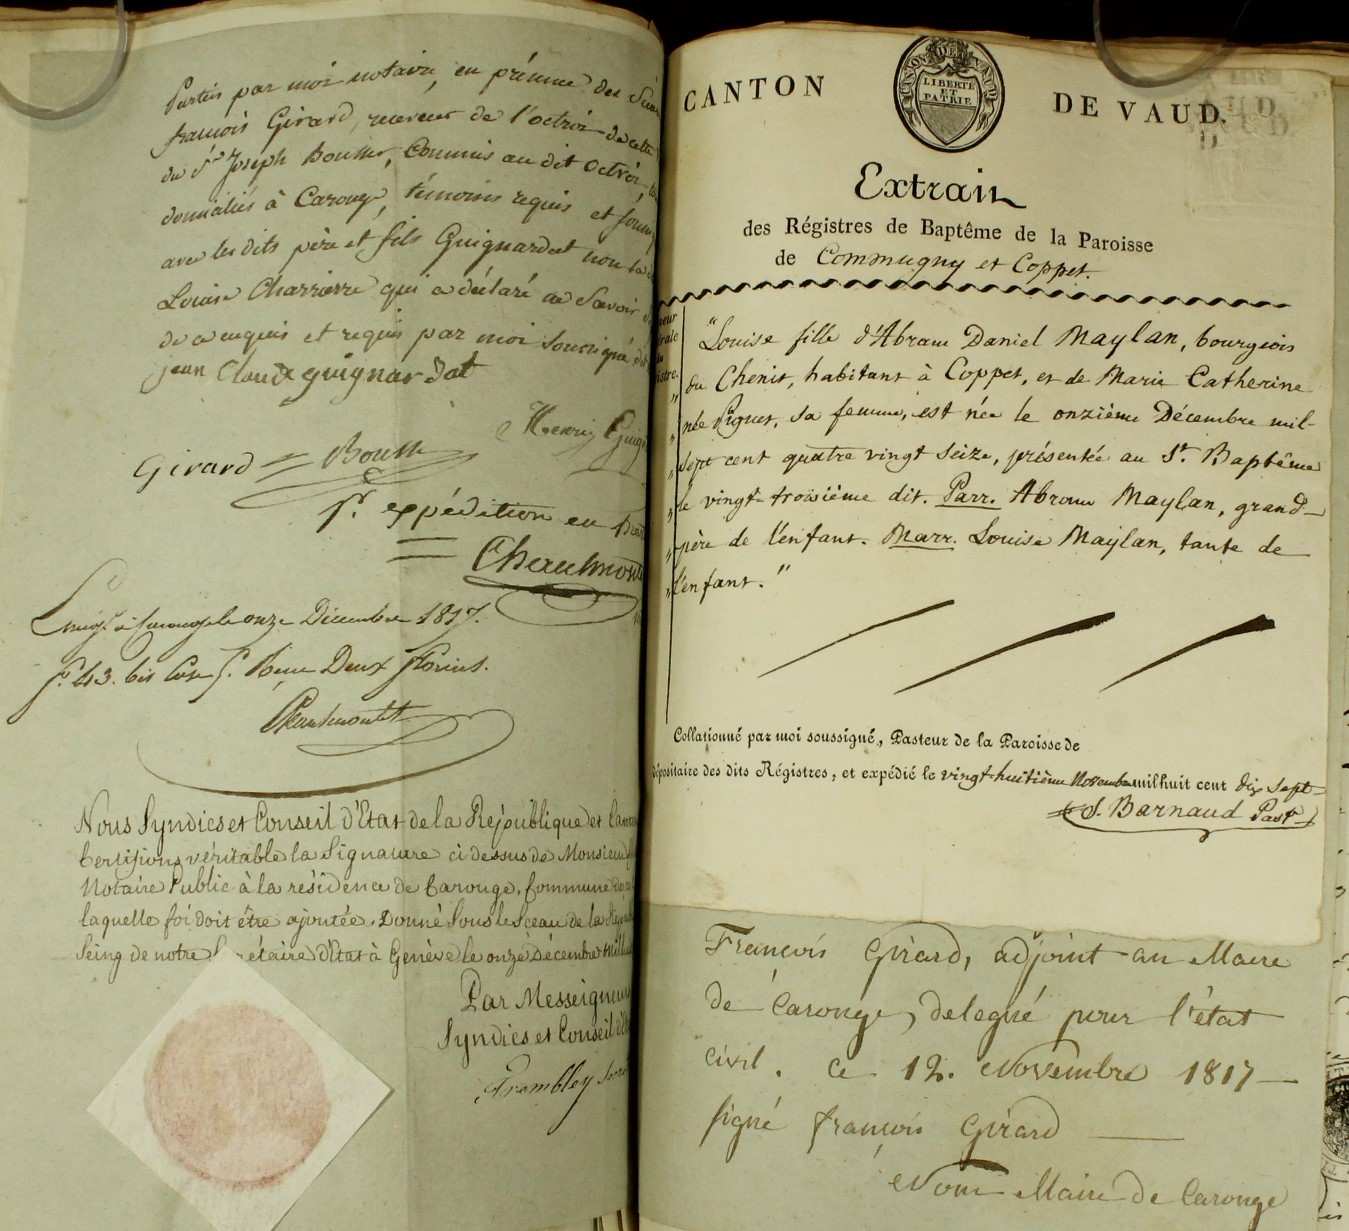 Parties par moi notaire, en présence des Sieurs
françois Girard, receveur de l'octroi de cette
du Sr Joseph Bousse, Commis au dit Octroi,
domiciliés à Carouge, témoins requis et
avec les dits père et fils Guignardat non la
Louise Charriere qui a déclaré ne Savoir
de ce enquis et requis par moi soussigné
jean Claude guignardat
Henri
Girard
1r. expédition en
Chaulmontet
à Carouge le onze Décembre 1817.
fo. 43. bis Case Deux florins.
Chaulmontet
Nous Syndics et Conseil d'Etat de la République et Canton
Certifions véritable la Signature ci dessus de Monsieur
Notaire Public à la résidence de Carouge, Commune
laquelle foi doit être ajoutée. Donné Sous le Sceau de la
Seing de notre Secrétaire d'Etat à Genève le onze Décembre
Par Messeigneurs
Syndics et Conseil
Trembley
CANTON DE VAUD.
CANTON DE VAUD
LIBERTÉ
ET
PATRIE
Extrait
des Régistres de Baptême de la Paroisse
de Commugny et Coppet.
"Louise fille d'Abram Daniel Maylan, bourgeois
du Chenit, habitant à Coppet, et de Marie Catherine
née Piguet, sa femme, est née le onzième Décembre mil-
sept cent quatre vingt seize, présentée au St. Baptême
le vingt-troisième dit. Parr. Abram Maylan, grand-
père de l'enfant. Marr. Louise Maylan, tante de
l'enfant."
Collationné par moi soussigné, Pasteur de la Paroisse de
dépositaire des dits Régistres, et expédié le vingt-huitième Novembre mil huit cent dix sept
S. Barnaud Pastr
François Girard, adjoint au Maire
de Carouge, delegué pour l'état
civil. Ce 12. Novembre 1817
signé françois Girard
Nous Maire de Carouge